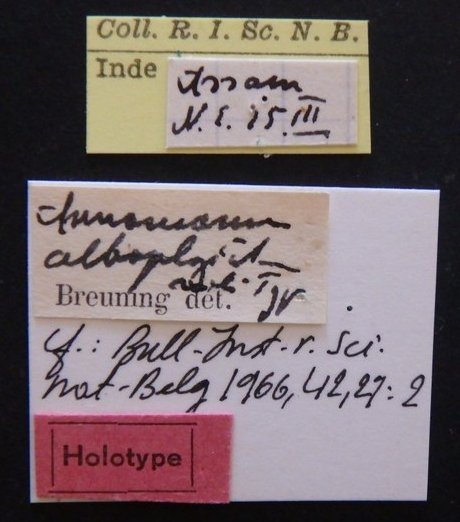 Coll. R. I. Sc. N. B.
Inde
Assam
N. E. 15. III
alboplagiata
Breuning det.
cf.: Bull-Inst-r. Sci.
nat-Belg 1966, 42, 27: 2
Holotype